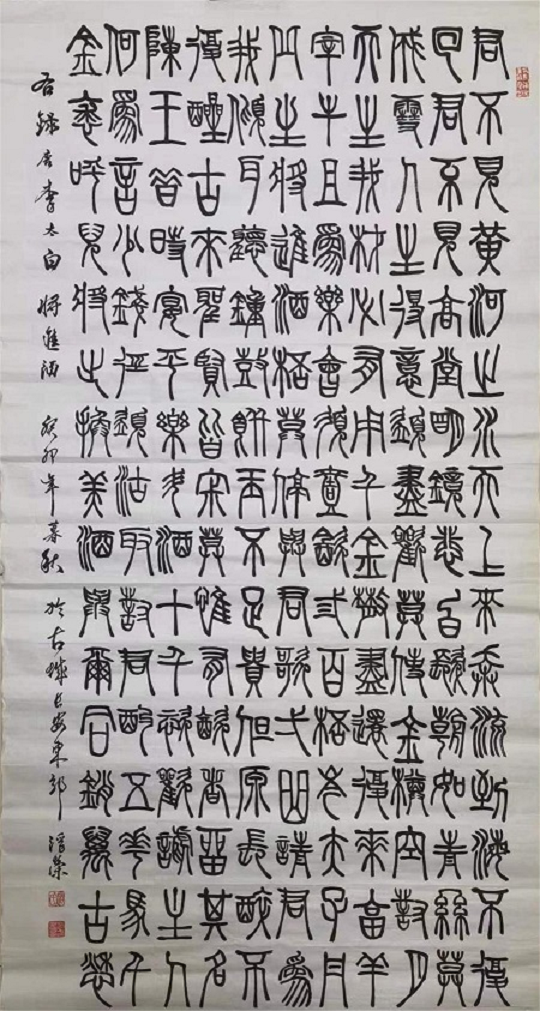 君不見黃河之水天上來奔流到海不復
回君不見高堂明鏡悲白髮朝如青絲莫
成雪人生得意須盡歡莫使金樽空對月
天生我材必有用千金散盡還復來烹羊
宰牛且爲樂會須壹飲弎百杯岑夫子丹
丘生將進酒杯莫停與君歌弌曲請君爲
我傾耳聽鐘鼓饌玉不足貴但原長醉不
復醒古來聖賢皆寂莫惟有飲者留其名
陳王昔時宴平樂斗酒十千恣歡謔主人
何爲言少錢徑須沽取對君酌五花馬千
金裘呼兒將出換美酒與爾同銷萬古愁
右錄唐李太白將進酒 癸卯年暮秋 於古城長安東郭